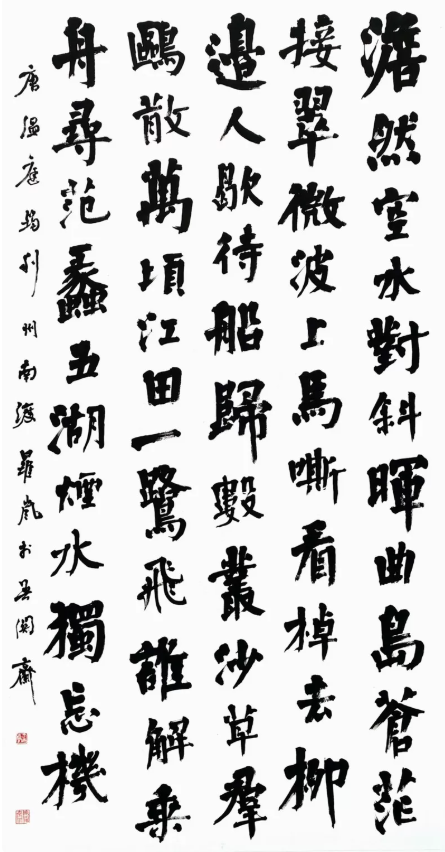 澹然空水對斜暉曲島蒼茫
接翠微波上馬嘶看棹去柳
邊人歇待船歸數叢沙草羣
鷗散萬頃江田一鷺飛誰解乘
舟尋范蠡五湖煙水獨忘機
唐温庭筠利州南渡 齋